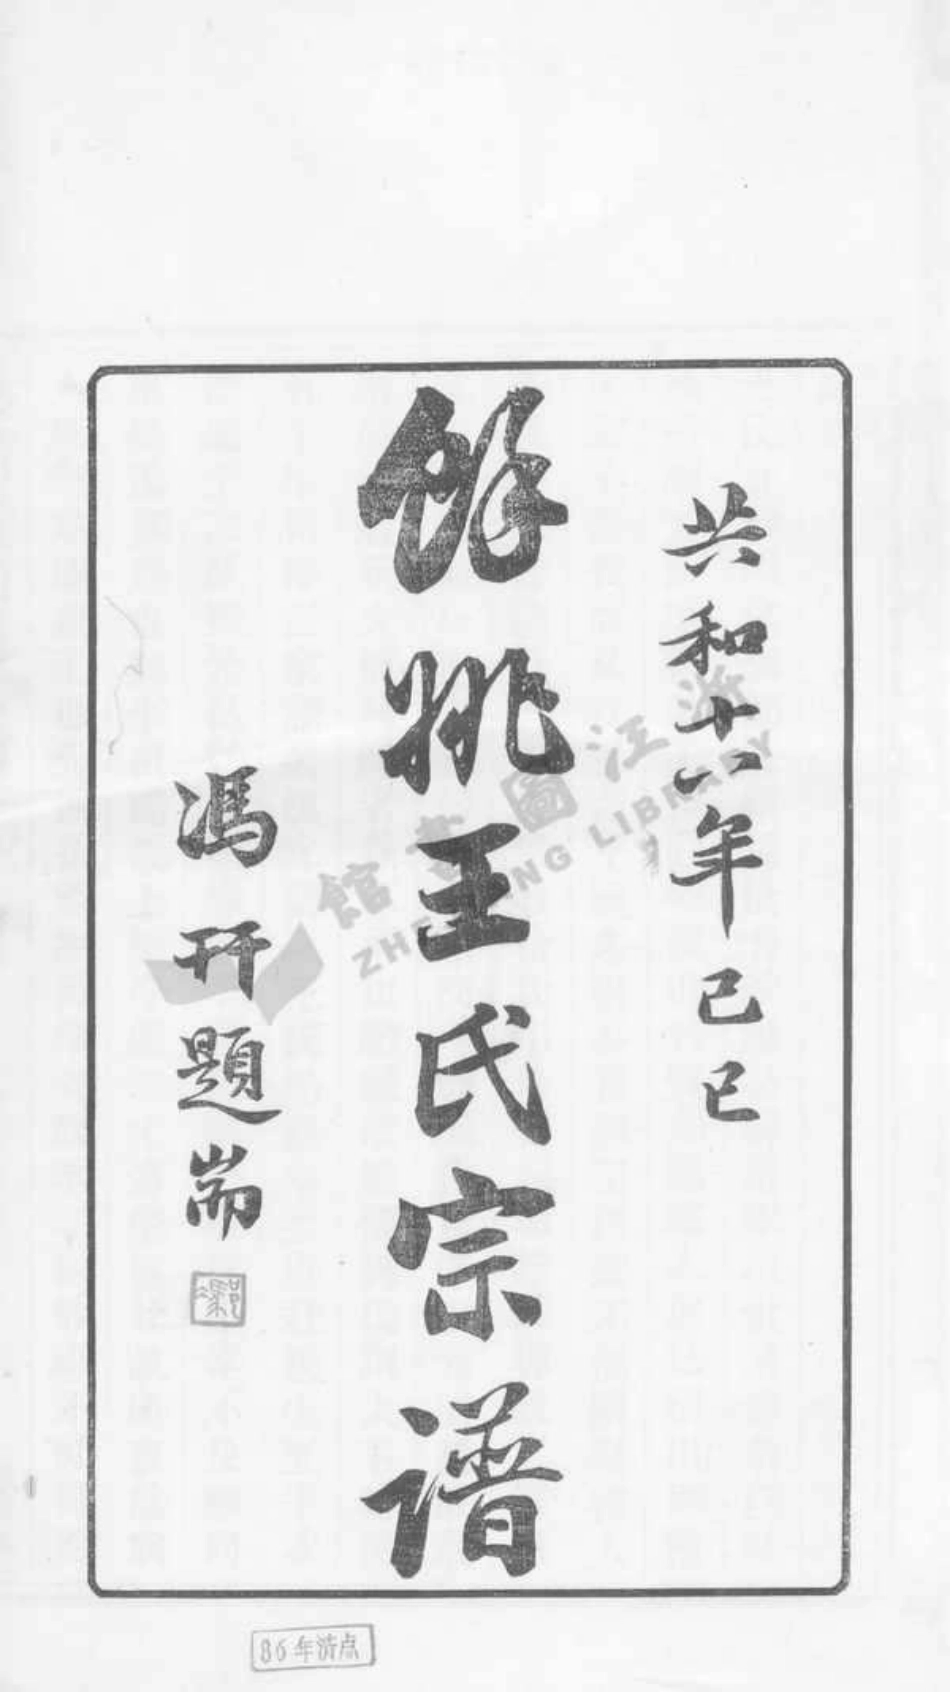 共和十八年己巳
餘姚王氏宗譜
馮开題耑
浙江圖書館
ZHEJIANG LIBRARY
86年清点